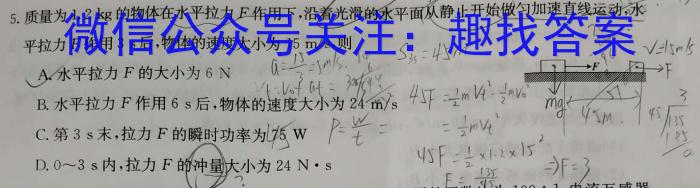 5. 质量为1.2 kg的物体在水平拉力F作用下,沿着光滑的水平面从静止开始做匀加速直线运动,水
平拉力F作用3 s后,物体的速度大小为15 m/s,则
微信公众号关注:趣找答案
A. 水平拉力 F 的大小为 6 N
B. 水平拉力 F 作用 6 s 后,物体的速度大小为 24 m/s
C. 第 3 s 末,拉力 F 的瞬时功率为 75 W
D. 0～3 s 内,拉力 F 的冲量大小为 24 N·s
45F=½mVt²-½mV0²
=½mVt²
45F=½×1.2×15²
⇒F=3
P=W/t=
V=15m/s
F
mg
45m